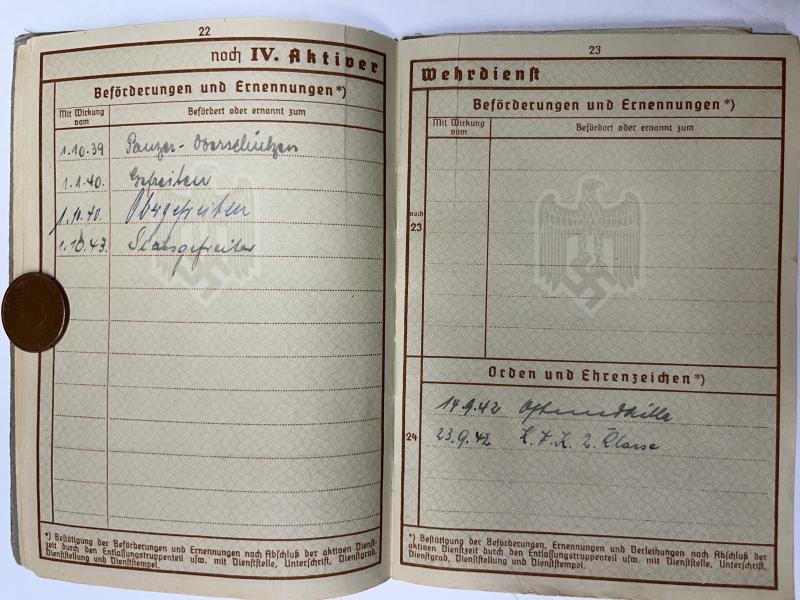 22
noch IV. Aktiver
Beförderungen und Ernennungen*)
Mit Wirkung vom
Befördert oder ernannt zum
1.10.39 Panzer-Oberschützen
1.1.40. Gefreiten
1.10.40. Obergefreiten
1.10.43. Stabsgefreiter
*) Bestätigung der Beförderungen und Ernennungen nach Abschluß der aktiven Dienst-
zeit durch den Entlassungstruppenteil usw. mit Dienststelle, Unterschrift, Dienstgrad,
Dienststellung und Dienststempel.
23
Wehrdienst
Beförderungen und Ernennungen*)
Mit Wirkung vom
Befördert oder ernannt zum
noch
23
Orden und Ehrenzeichen*)
14.9.42 Ostmedaille
24
23.9.42 K.V.K. 2. Klasse
*) Bestätigung der Beförderungen, Ernennungen und Verleihungen nach Abschluß der
aktiven Dienstzeit durch den Entlassungstruppenteil usw. mit Dienststelle, Unterschrift,
Dienstgrad, Dienststellung und Dienststempel.